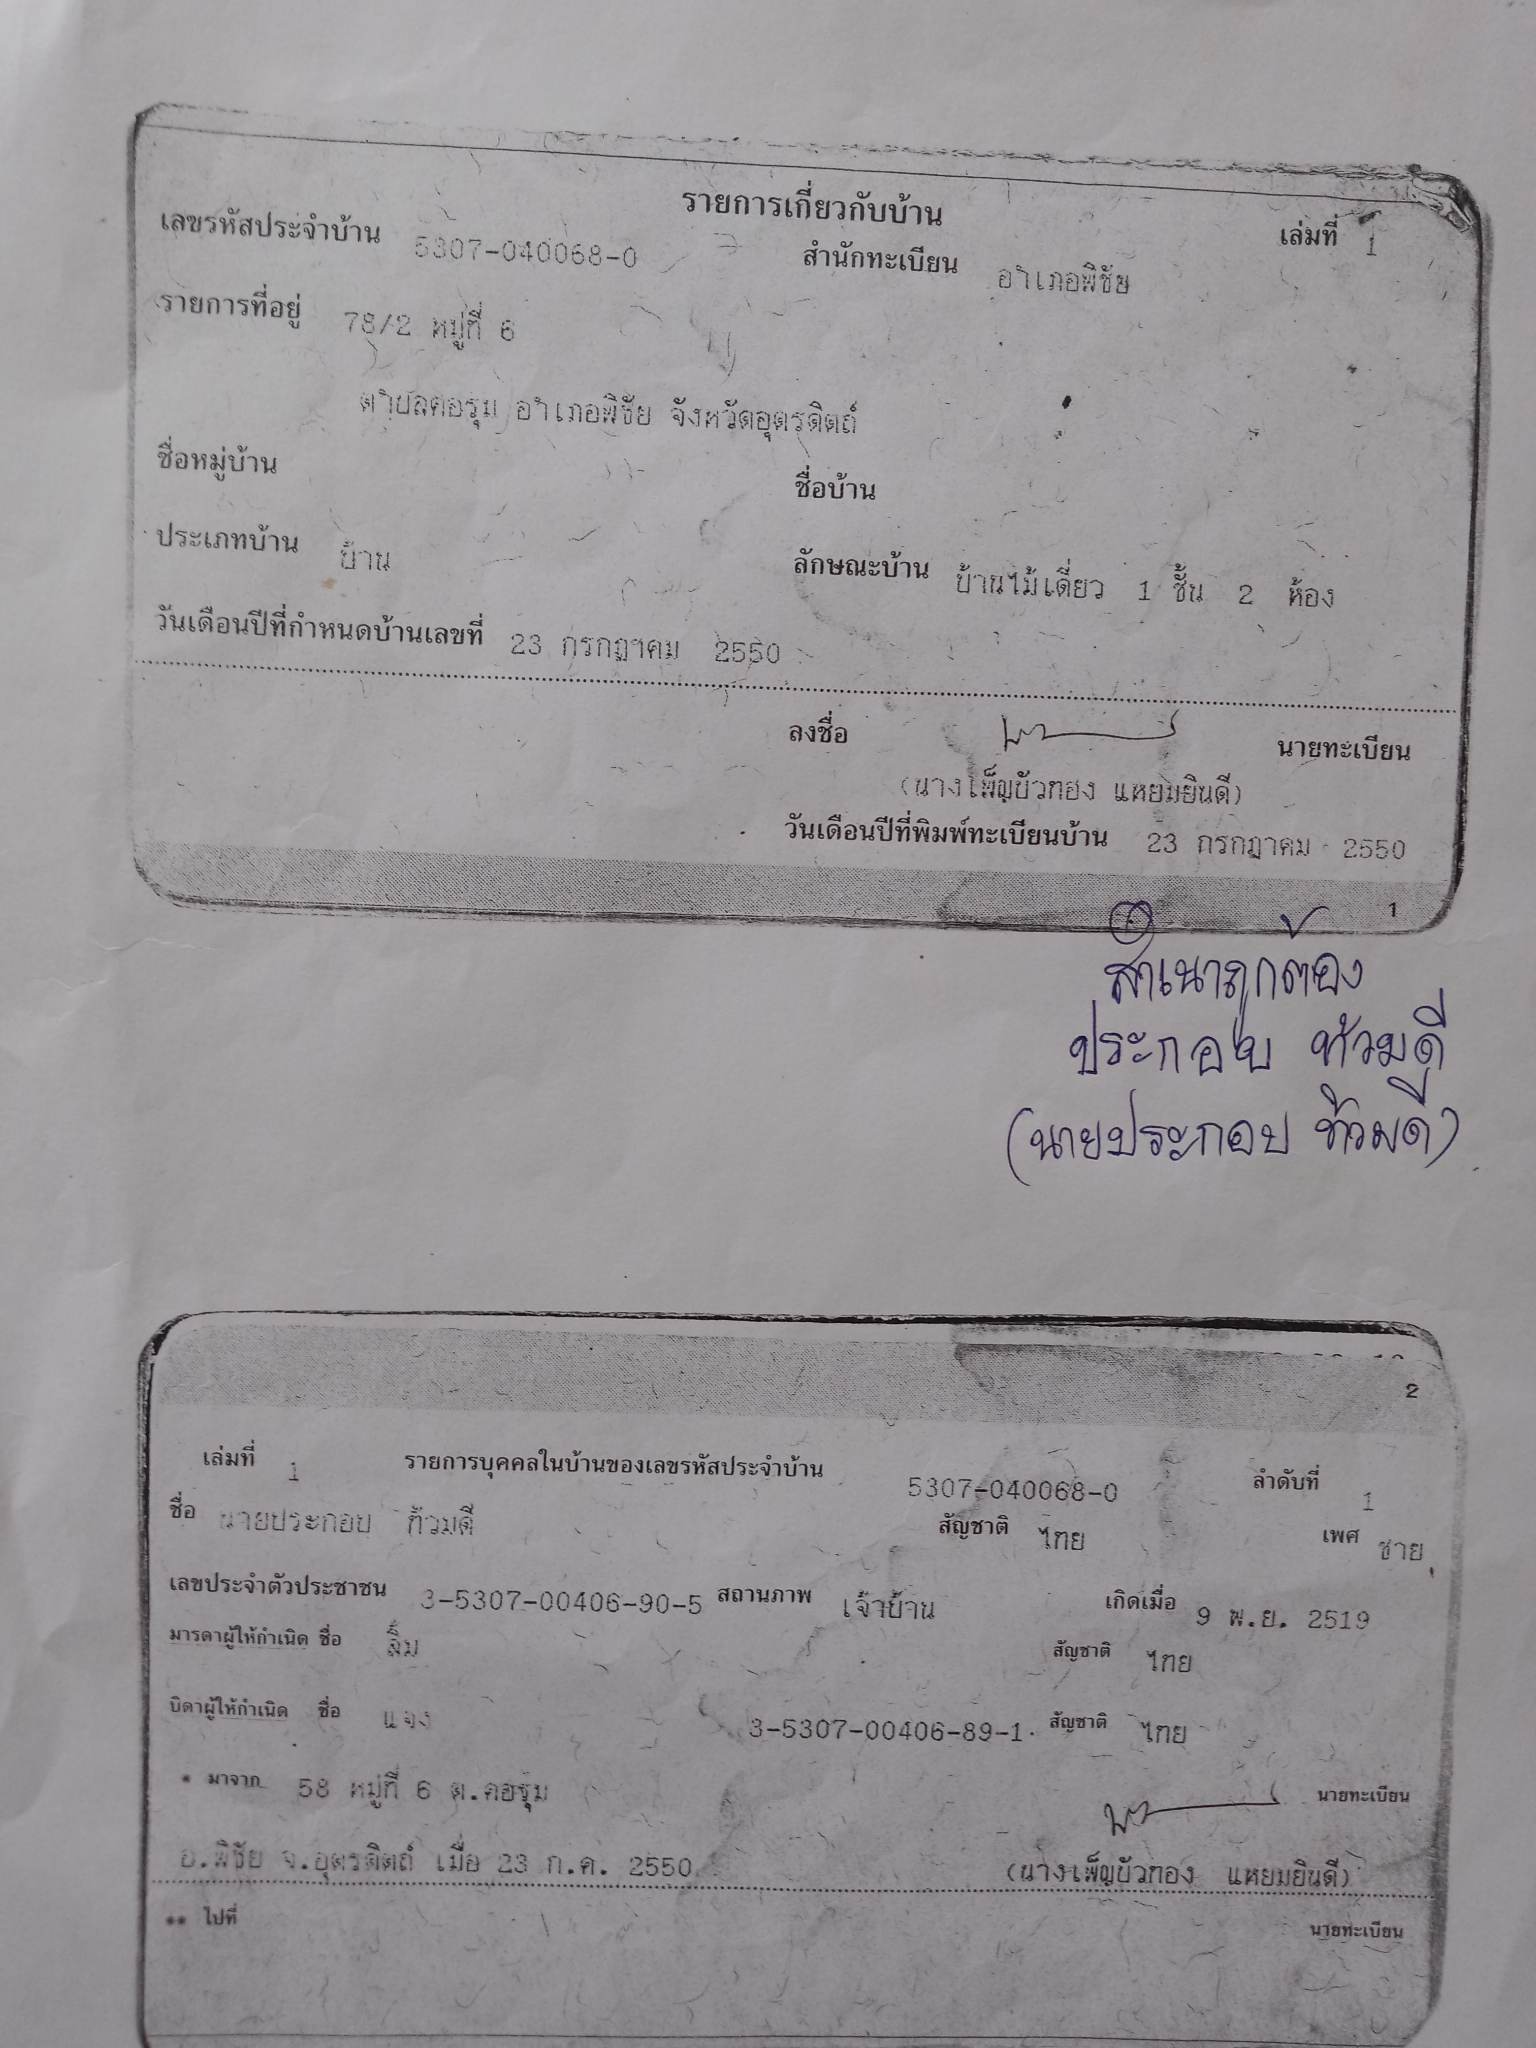 รายการเกี่ยวกับบ้าน
เล่มที่ 1
เลขรหัสประจำบ้าน 5307-040068-0 สำนักทะเบียน อำเภอพิชัย
รายการที่อยู่ 78/2 หมู่ที่ 6
ตำบลคอรุม อำเภอพิชัย จังหวัดอุตรดิตถ์
ชื่อหมู่บ้าน ชื่อบ้าน
ประเภทบ้าน บ้าน ลักษณะบ้าน บ้านไม้เดี่ยว 1 ชั้น 2 ห้อง
วันเดือนปีที่กำหนดบ้านเลขที่ 23 กรกฎาคม 2550
ลงชื่อ นายทะเบียน
(นางเพ็ญบัวทอง แหยมยินดี)
วันเดือนปีที่พิมพ์ทะเบียนบ้าน 23 กรกฎาคม 2550
1
สำเนาถูกต้อง
ประกอบ ท้วมดี
(นายประกอบ ท้วมดี)
2
เล่มที่ 1 รายการบุคคลในบ้านของเลขรหัสประจำบ้าน 5307-040068-0 ลำดับที่ 1
ชื่อ นายประกอบ ท้วมดี สัญชาติ ไทย เพศ ชาย
เลขประจำตัวประชาชน 3-5307-00406-90-5 สถานภาพ เจ้าบ้าน เกิดเมื่อ 9 พ.ย. 2519
มารดาผู้ให้กำเนิด ชื่อ ลิ้ม สัญชาติ ไทย
บิดาผู้ให้กำเนิด ชื่อ แจง 3-5307-00406-89-1 สัญชาติ ไทย
* มาจาก 58 หมู่ที่ 6 ต.คอรุม นายทะเบียน
อ.พิชัย จ.อุตรดิตถ์ เมื่อ 23 ก.ค. 2550 (นางเพ็ญบัวทอง แหยมยินดี)
** ไปที่ นายทะเบียน